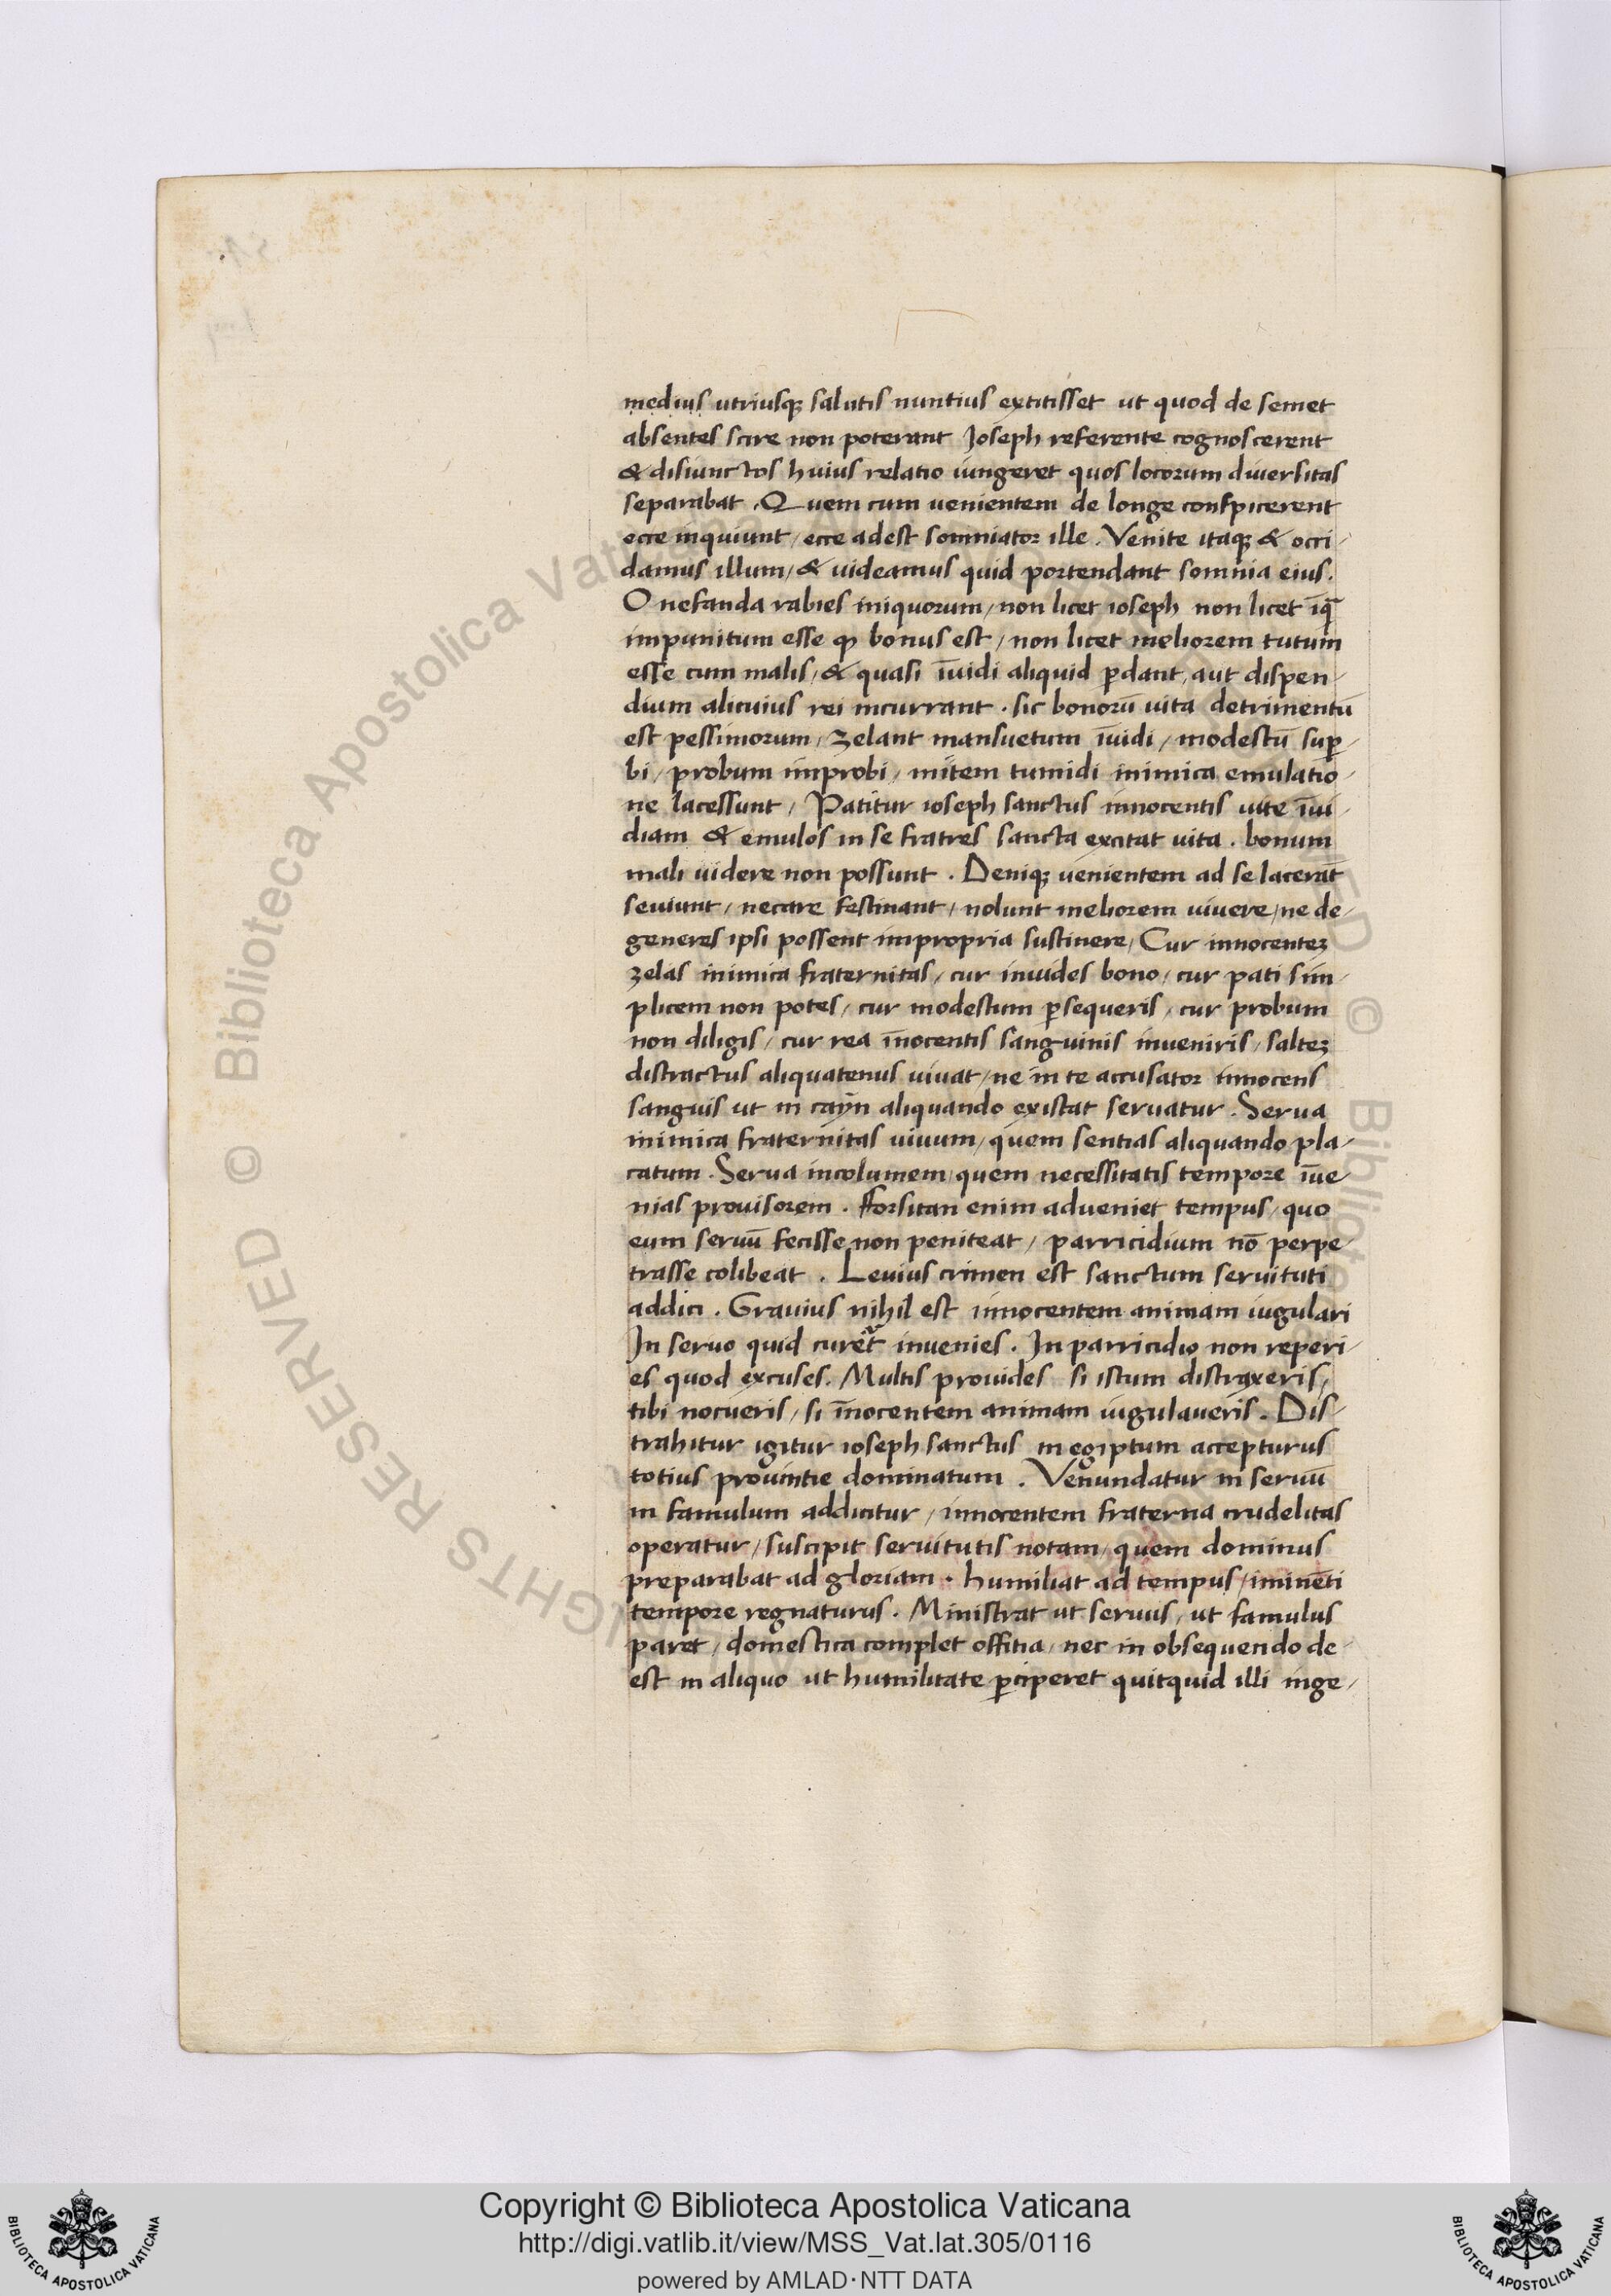 medius utriusq; salutis nuntius extitisset ut quod de semet
absentes scire non poterant Joseph referente cognoscerent
& disiunctos huius relatio iungeret quos locorum diuersitas
separabat . Quem cum uenientem de longe conspicerent
ecce inquiunt / ecce adest somniator ille . Venite itaq; & occi-
damus illum / & uideamus quid portendant somnia eius .
O nefanda rabies iniquorum / non licet ioseph non licet īq̄
impunitum esse ꝙ bonus est / non licet meliorem tutum
esse cum malis / & quasi īuidi aliquid ꝑdant / aut dispen-
dium alicuius rei incurrant . sic bonorū uita detrimentū
est pessimorum / zelant mansuetum īuidi / modestū suꝑ-
bi / probum improbi / mitem tumidi inimica emulatio-
ne lacessunt / Patitur ioseph sanctus innocentis uite īui-
diam & emulos in se fratres sancta excitat uita . bonum
mali uidere non possunt . Deniq; uenientem ad se lacerāt
seuiunt / necare festinant / nolunt meliorem uiuere / ne de-
generes ipsi possent impropria sustinere / Cur innocentez
zelas inimica fraternitas / cur inuides bono / cur pati sim-
plicem non potes / cur modestum ꝑsequeris / cur probum
non diligis / cur rea īnocentis sanguinis inueniris / saltez
distractus aliquatenus uiuat / ne in te accusator innocens
sanguis ut in cayn aliquando existat seruatur . Serua
inimica fraternitas uiuum / quem sentias aliquando pla-
catum . Serua incolumem quem necessitatis tempore īue-
nias prouisorem . Forsitan enim adueniet tempus / quo
eum seruū fecisse non peniteat / parricidium nō perpe-
trasse colibeat . Leuius crimen est sanctum seruituti
addici . Grauius nihil est innocentem animam iugulari
In seruo quid curet᷑ inuenies . In parricidio non reperi-
es quod excuses . Multis prouides si istum distraxeris /
tibi nocueris / si īnocentem animam iugulaueris . Dis-
trahitur igitur ioseph sanctus in egiptum accepturus
totius prouintie dominatum . Venundatur in seruū
in famulum addicitur / innocentem fraterna crudelitas
operatur / suscipit seruitutis notam / quem dominus
preparabat ad gloriam . humiliat ad tempus / iminēti
tempore regnaturus . Ministrat ut seruus / ut famulus
paret / domestica complet offitia / nec in obsequendo de-
est in aliquo ut humilitate ꝑciperet quitquid illi inge-
© Biblioteca Apostolica Vaticana
RIGHTS RESERVED
Copyright © Biblioteca Apostolica Vaticana
http://digi.vatlib.it/view/MSS_Vat.lat.305/0116
powered by AMLAD·NTT DATA
BIBLIOTECA APOSTOLICA VATICANA
BIBLIOTECA APOSTOLICA VATICANA